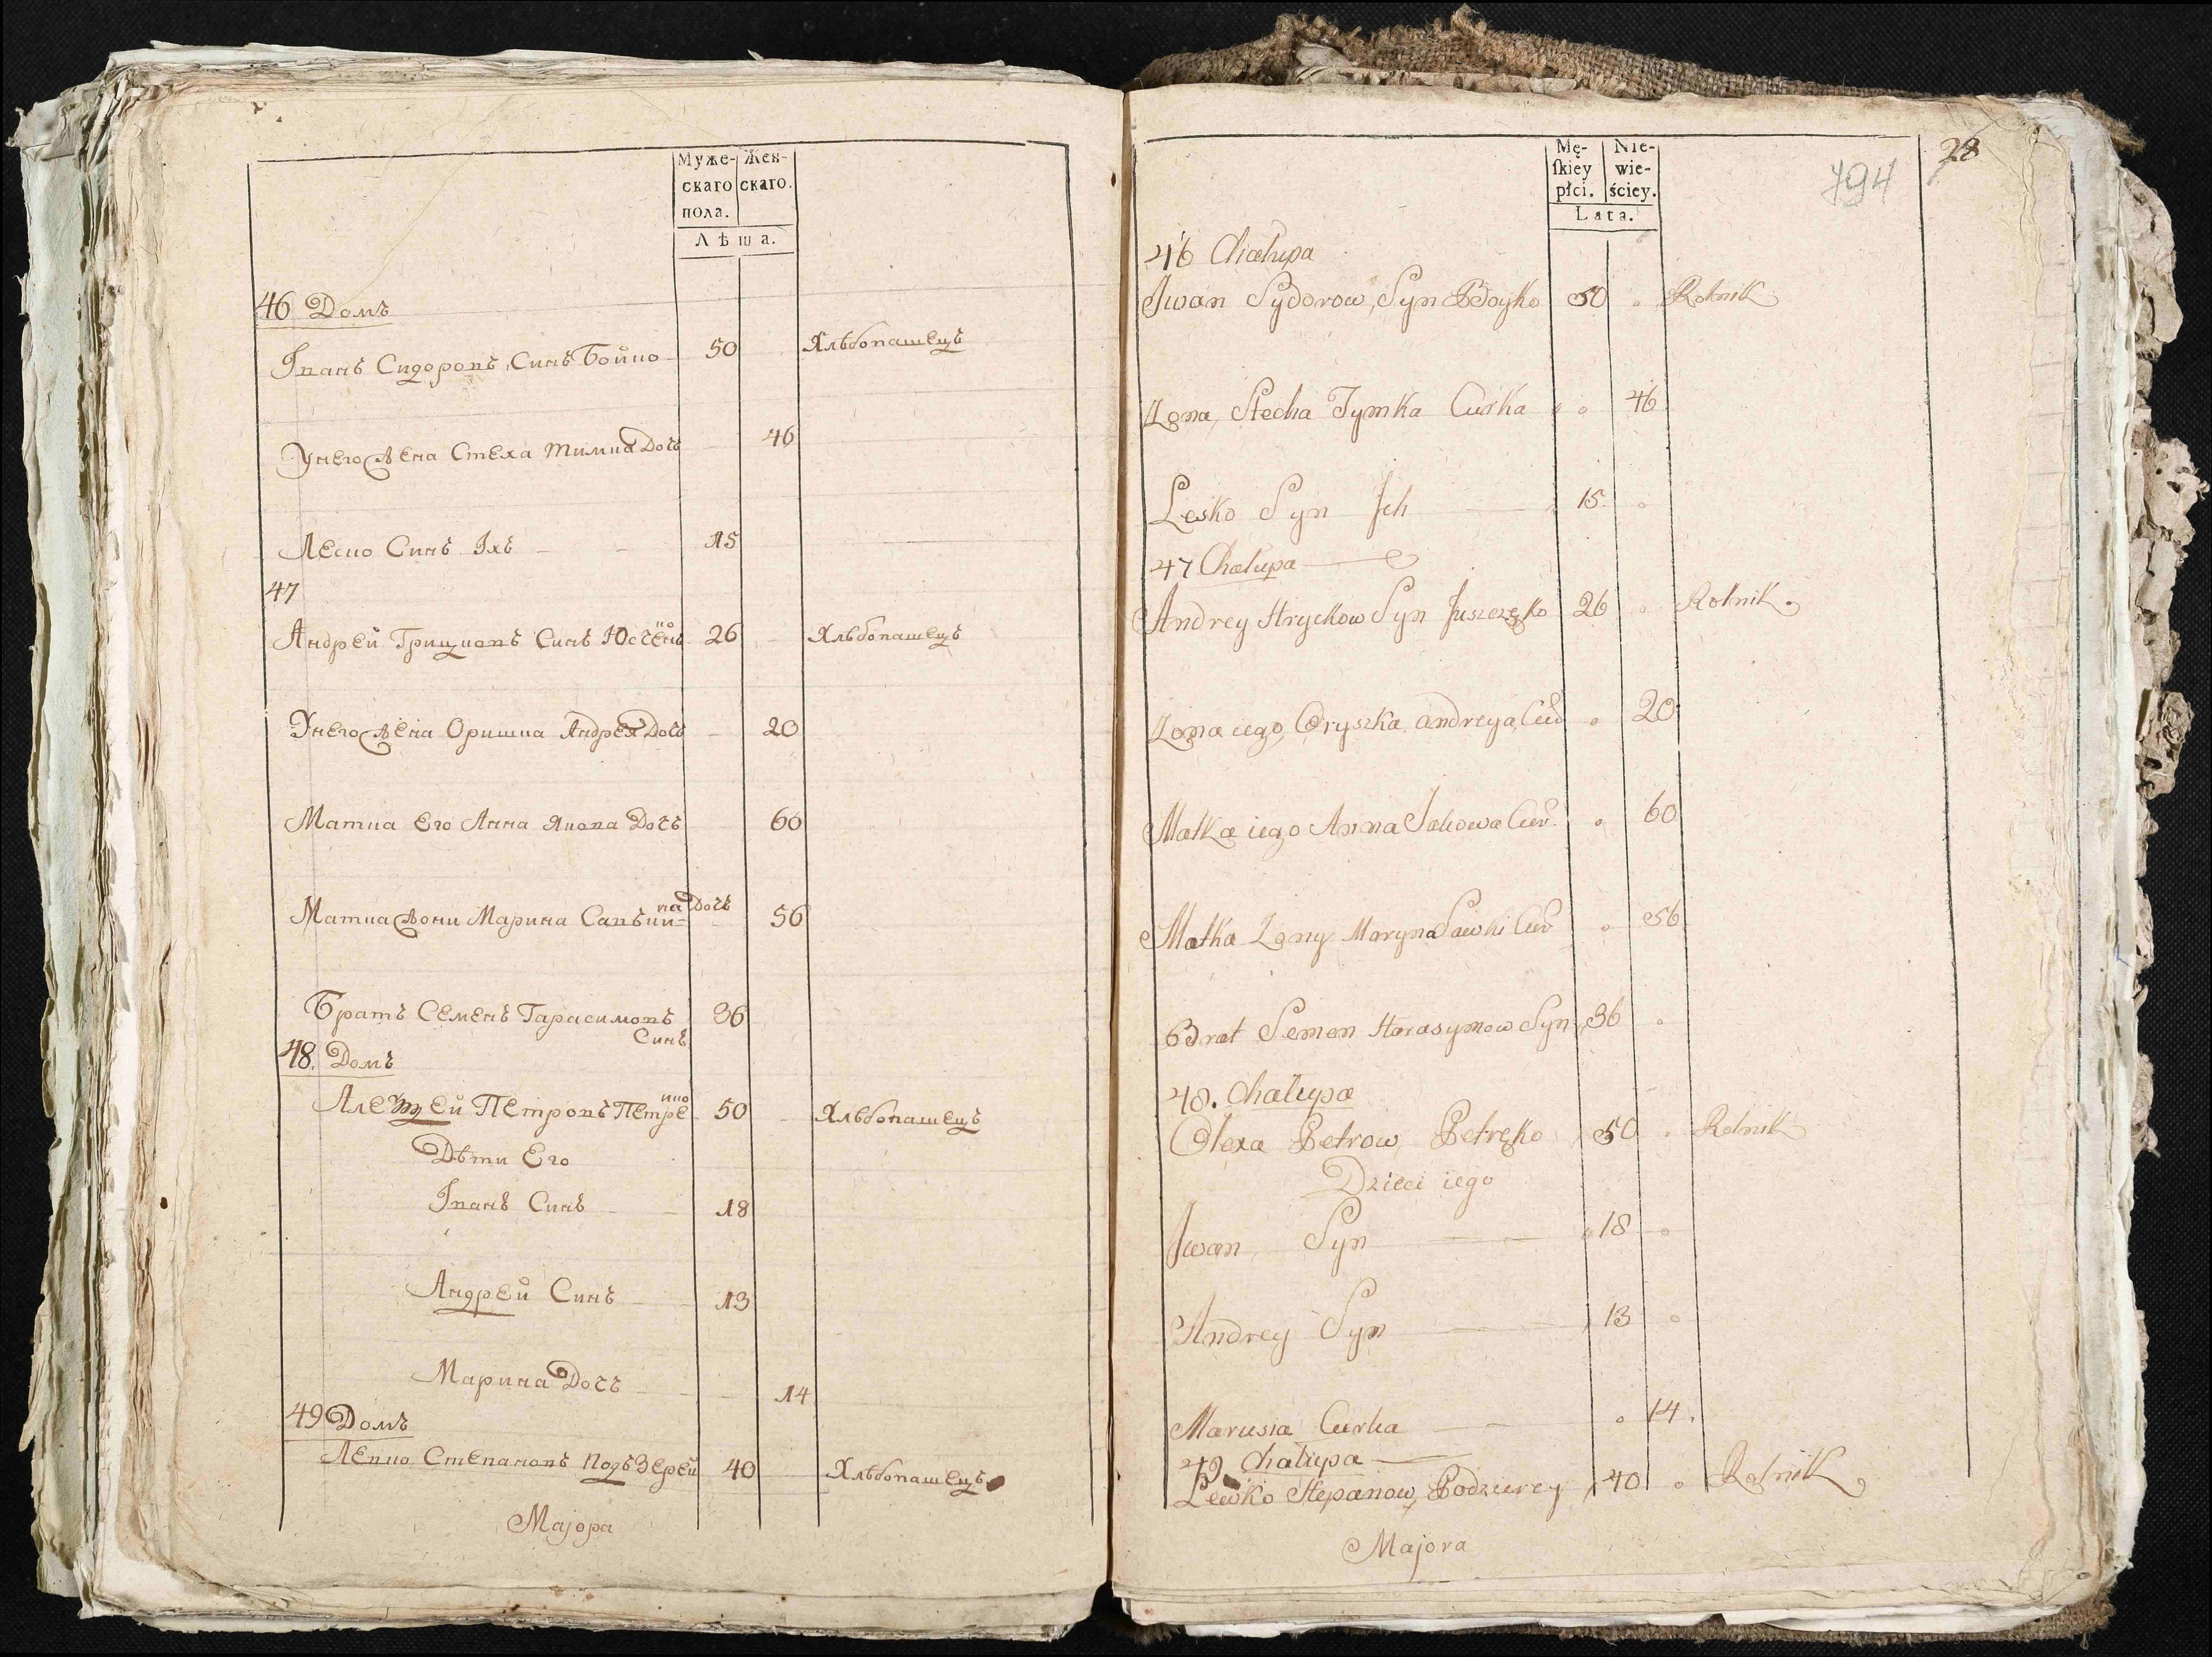 Муже- Жен-
скаго скаго.
пола.
Лѣта.
46 Домъ
Іванъ Сидоровъ Синъ Бойко 50 Хлѣбопашецъ
Унего Жена Стеха Тимка Дочъ 46
Леско Синъ Іхъ 15
47
Андрей Грицковъ Синъ Юсченко 26 Хлѣбопашецъ
Унего Жена Оришка Андрея Дочъ 20
Матка Его Анна Якова Дочъ 60
Матка Жони Марина Савъки- на Дочъ 56
Братъ Семенъ Гарасимовъ 36
Синъ
48. Домъ
Петровъ Петренко 50 Хлѣбопашецъ
Дѣти Его
Іванъ Синъ 18
Андрей Синъ 13
Марина Дочъ 14
49 Домъ
Левко Степановъ Подъзерей 40 Хлѣбопашецъ
Majора
28
794
Mę- Nie-
ſkiey wie-
płci. ściey.
Lata.
46 Chałupa
Jwan Sydorow Syn Boyko 50 Rolnik
Zona, Stecha Tymka Curka 46
Lesko Syn Jch 15
47 Chałupa
Andrey Hryckow Syn Juszczęko 26 Rolnik
Zona iego Oryszka andreya Cur 20
Matka iego Anna Jakowa Cur 60
Matka Zony Maryna Sawki Cur 56
Brat Semen Harasymow Syn 36
48. Chałupa
Olexa Petrow Petręko 50 Rolnik
Dzieci iego
Jwan Syn 18
Andrey Syn 13
Marusia Curka 14.
49 Chałupa
Lewko Stepanow Podzierey 40 Rolnik
Majora